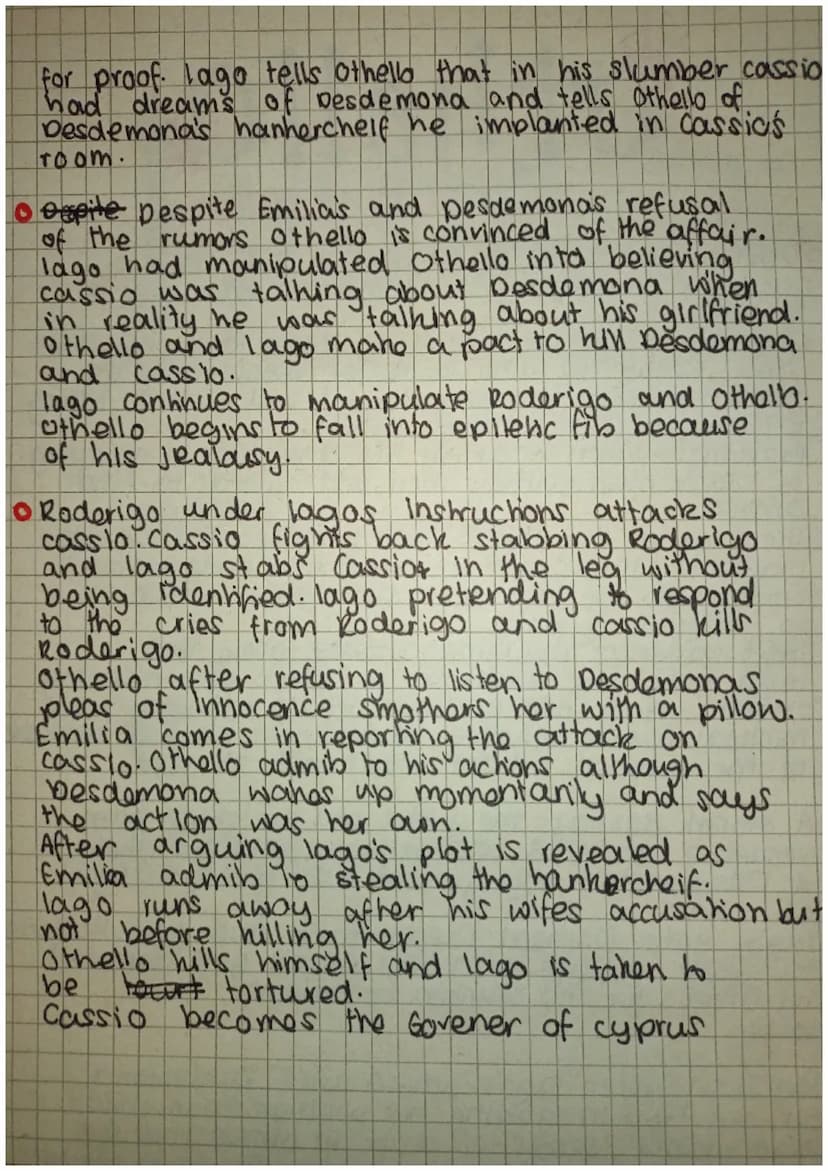 for proof. Iago tells Othello that in his slumber cassio
had dreams of Desdemona and tells Othello of
Desdemona's hanhercheif he implanted in Cassio's
room.
Despite Despite Emilia's and Desdemona's refusal
of the rumors Othello is convinced of the affair.
Iago had manipulated Othello into believing
cassio was talking about Desdemona when
in reality he was talking about his girlfriend.
Othello and Iago make a pact to kill Desdemona
and cassio.
Iago continues to manipulate Roderigo and Othello.
Othello begins to fall into epiletic fits because
of his jealousy.
Roderigo under Iagos instructions attacks
cassio. Cassio fights back stabbing Roderigo
and Iago stabs Cassio in the leg without
being identified. Iago pretending to respond
to the cries from Roderigo and cassio kills
Roderigo.
Othello after refusing to listen to Desdemonas
pleas of innocence smothers her with a pillow.
Emilia comes in reporting the attack on
cassio. Othello admits to his actions although
Desdemona wakes up momentarily and says
the action was her own.
After arguing Iago's plot is revealed as
Emilia admits to stealing the hankercheif.
Iago runs away after his wifes accusation but
not before killing her.
Othello kills himself and Iago is taken to
be tortured.
Cassio becomes the Govener of cyprus